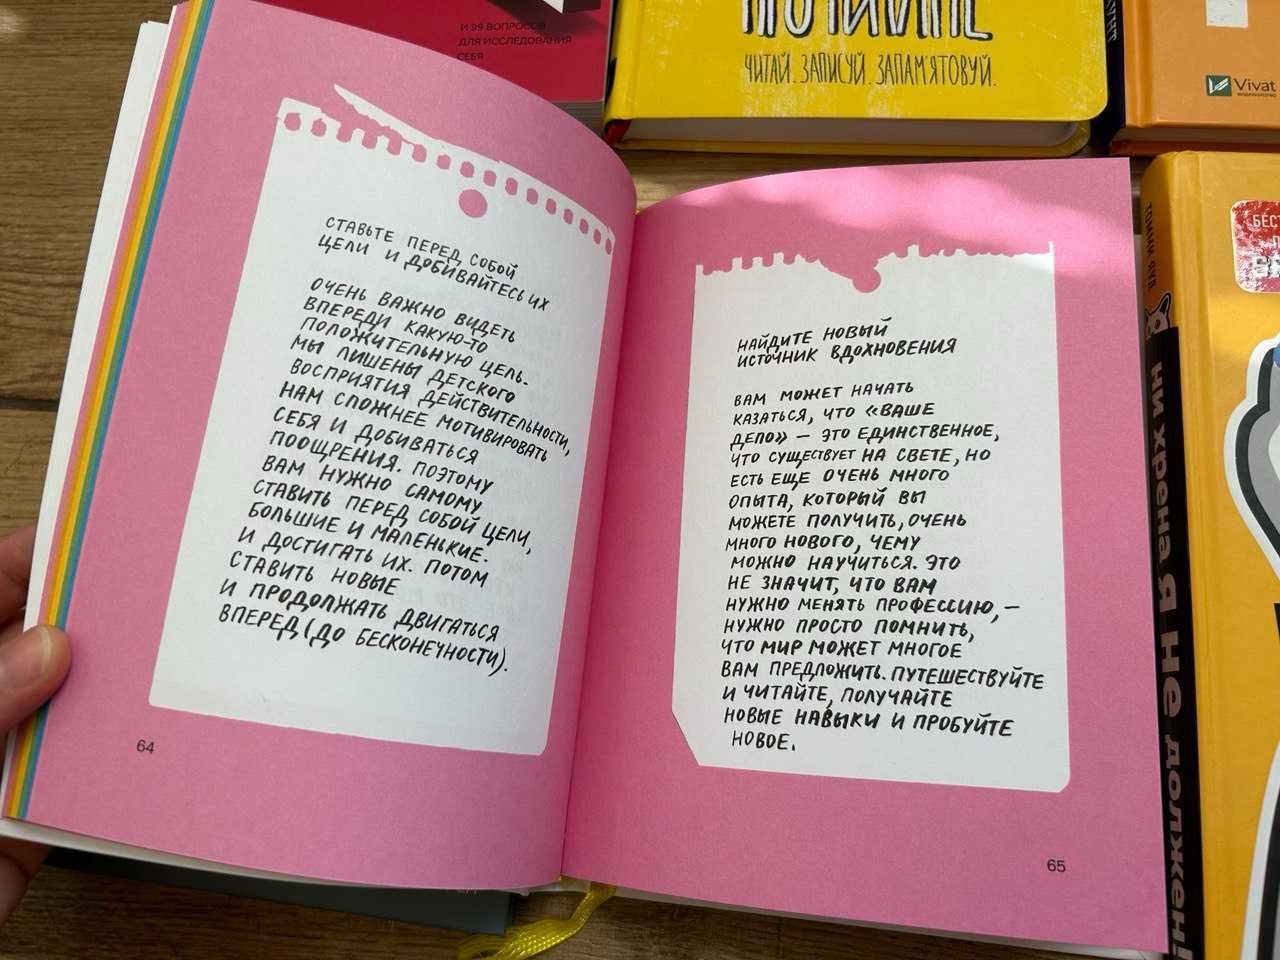 И 99 ВОПРОСОВ
ДЛЯ ИССЛЕДОВАНИЯ
СЕБЯ
ЧИТАЙ. ЗАПИСУЙ. ЗАПАМ'ЯТОВУЙ.
Vivat
СТАВЬТЕ ПЕРЕД СОБОЙ
ЦЕЛИ И ДОБИВАЙТЕСЬ ИХ
ОЧЕНЬ ВАЖНО ВИДЕТЬ
ВПЕРЕДИ КАКУЮ-ТО
ПОЛОЖИТЕЛЬНУЮ ЦЕЛЬ.
МЫ ЛИШЕНЫ ДЕТСКОГО
ВОСПРИЯТИЯ ДЕЙСТВИТЕЛЬНОСТИ,
НАМ СЛОЖНЕЕ МОТИВИРОВАТЬ
СЕБЯ И ДОБИВАТЬСЯ
ПООЩРЕНИЯ. ПОЭТОМУ
ВАМ НУЖНО САМОМУ
СТАВИТЬ ПЕРЕД СОБОЙ ЦЕЛИ,
БОЛЬШИЕ И МАЛЕНЬКИЕ.
И ДОСТИГАТЬ ИХ. ПОТОМ
СТАВИТЬ НОВЫЕ
И ПРОДОЛЖАТЬ ДВИГАТЬСЯ
ВПЕРЕД (ДО БЕСКОНЕЧНОСТИ).
64
НАЙДИТЕ НОВЫЙ
ИСТОЧНИК ВДОХНОВЕНИЯ
ВАМ МОЖЕТ НАЧАТЬ
КАЗАТЬСЯ, ЧТО «ВАШЕ
ДЕЛО» — ЭТО ЕДИНСТВЕННОЕ,
ЧТО СУЩЕСТВУЕТ НА СВЕТЕ, НО
ЕСТЬ ЕЩЕ ОЧЕНЬ МНОГО
ОПЫТА, КОТОРЫЙ ВЫ
МОЖЕТЕ ПОЛУЧИТЬ, ОЧЕНЬ
МНОГО НОВОГО, ЧЕМУ
МОЖНО НАУЧИТЬСЯ. ЭТО
НЕ ЗНАЧИТ, ЧТО ВАМ
НУЖНО МЕНЯТЬ ПРОФЕССИЮ, —
НУЖНО ПРОСТО ПОМНИТЬ,
ЧТО МИР МОЖЕТ МНОГОЕ
ВАМ ПРЕДЛОЖИТЬ. ПУТЕШЕСТВУЙТЕ
И ЧИТАЙТЕ, ПОЛУЧАЙТЕ
НОВЫЕ НАВЫКИ И ПРОБУЙТЕ
НОВОЕ.
65
ни хрена я не должен!